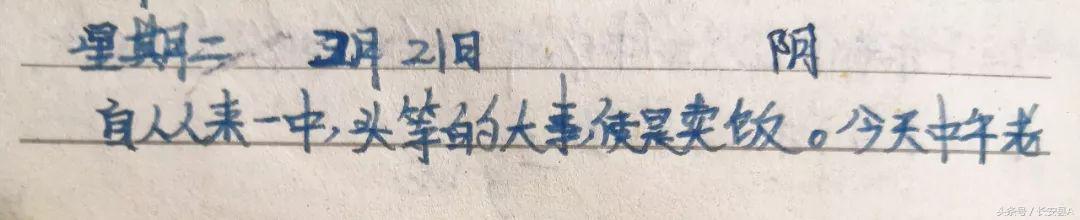 星期二 3月21日 阴
自从来一中,头等的大事便是卖饭。今天中午老
头条号 / 长安县A